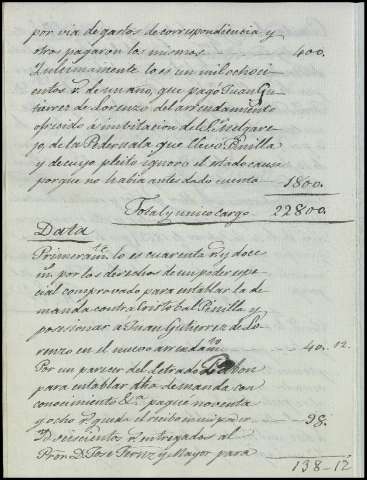 por via de gastos de correspondiencia y
otro pagaron los mismos 400.
Ultimamente lo es un mil ochoci
entos r.^s de un año, que pagó Juan Gu
tiérrez de Lorenzo del arrendamiento
ofrecido á invitacion del
jo de la Pedernala que llevó Pinilla
y de cuyo pleito ignoro el estado
porque no habia antes dado cuenta 1800.
Total y unico cargo 22800.
Data
Primeram.te lo es cuarenta r.^s y doce
m.^s por los derechos de un poder espe
cial comprovado para entablar la de
manda contra Cristobal Pinilla y
posesionar a Juan Gutierrez de Lo
renzo en el nuevo arrendam.to 40.12.
Por un parecer del letrado
para entablar dha demanda con
conocimiento &.^a pagué noventa
y ocho r.^s queda el recibo en mi poder 98.
doscientos r.^s entregados al
Pro.^r D. José Ferrz y Mayor para
138-12